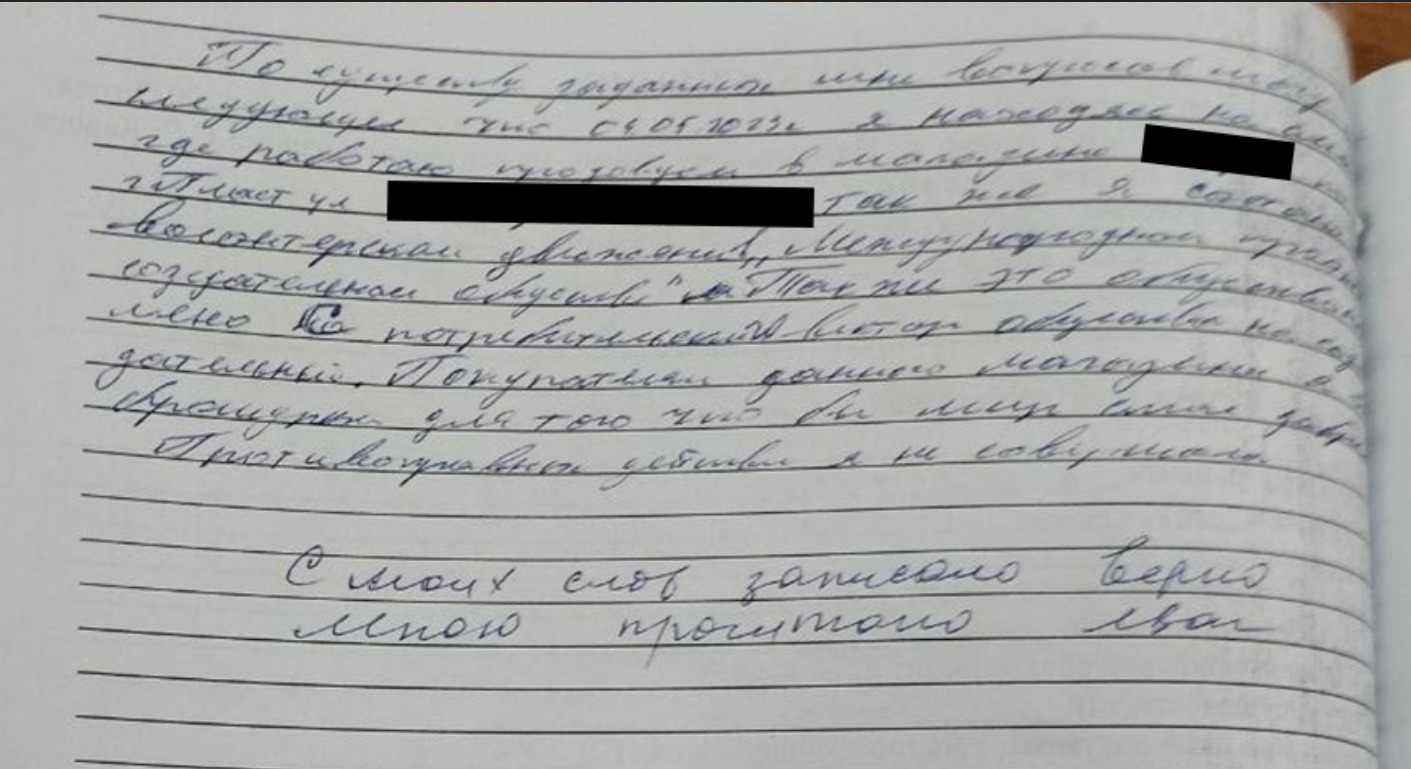 По существу заданных мне вопросов могу
следующее что 04.05.2023г я находилась на
где работаю продавцом в магазине
г Пласт ул так же я
волонтерском движении „Международном
созидательном обществе" Так же это
потребительский вектор общества на
дательный. Покупателям данного магазина я
брошюрки для того что бы мир стал
Противоправных действий я не совершала
С моих слов записано верно
Мною прочитано